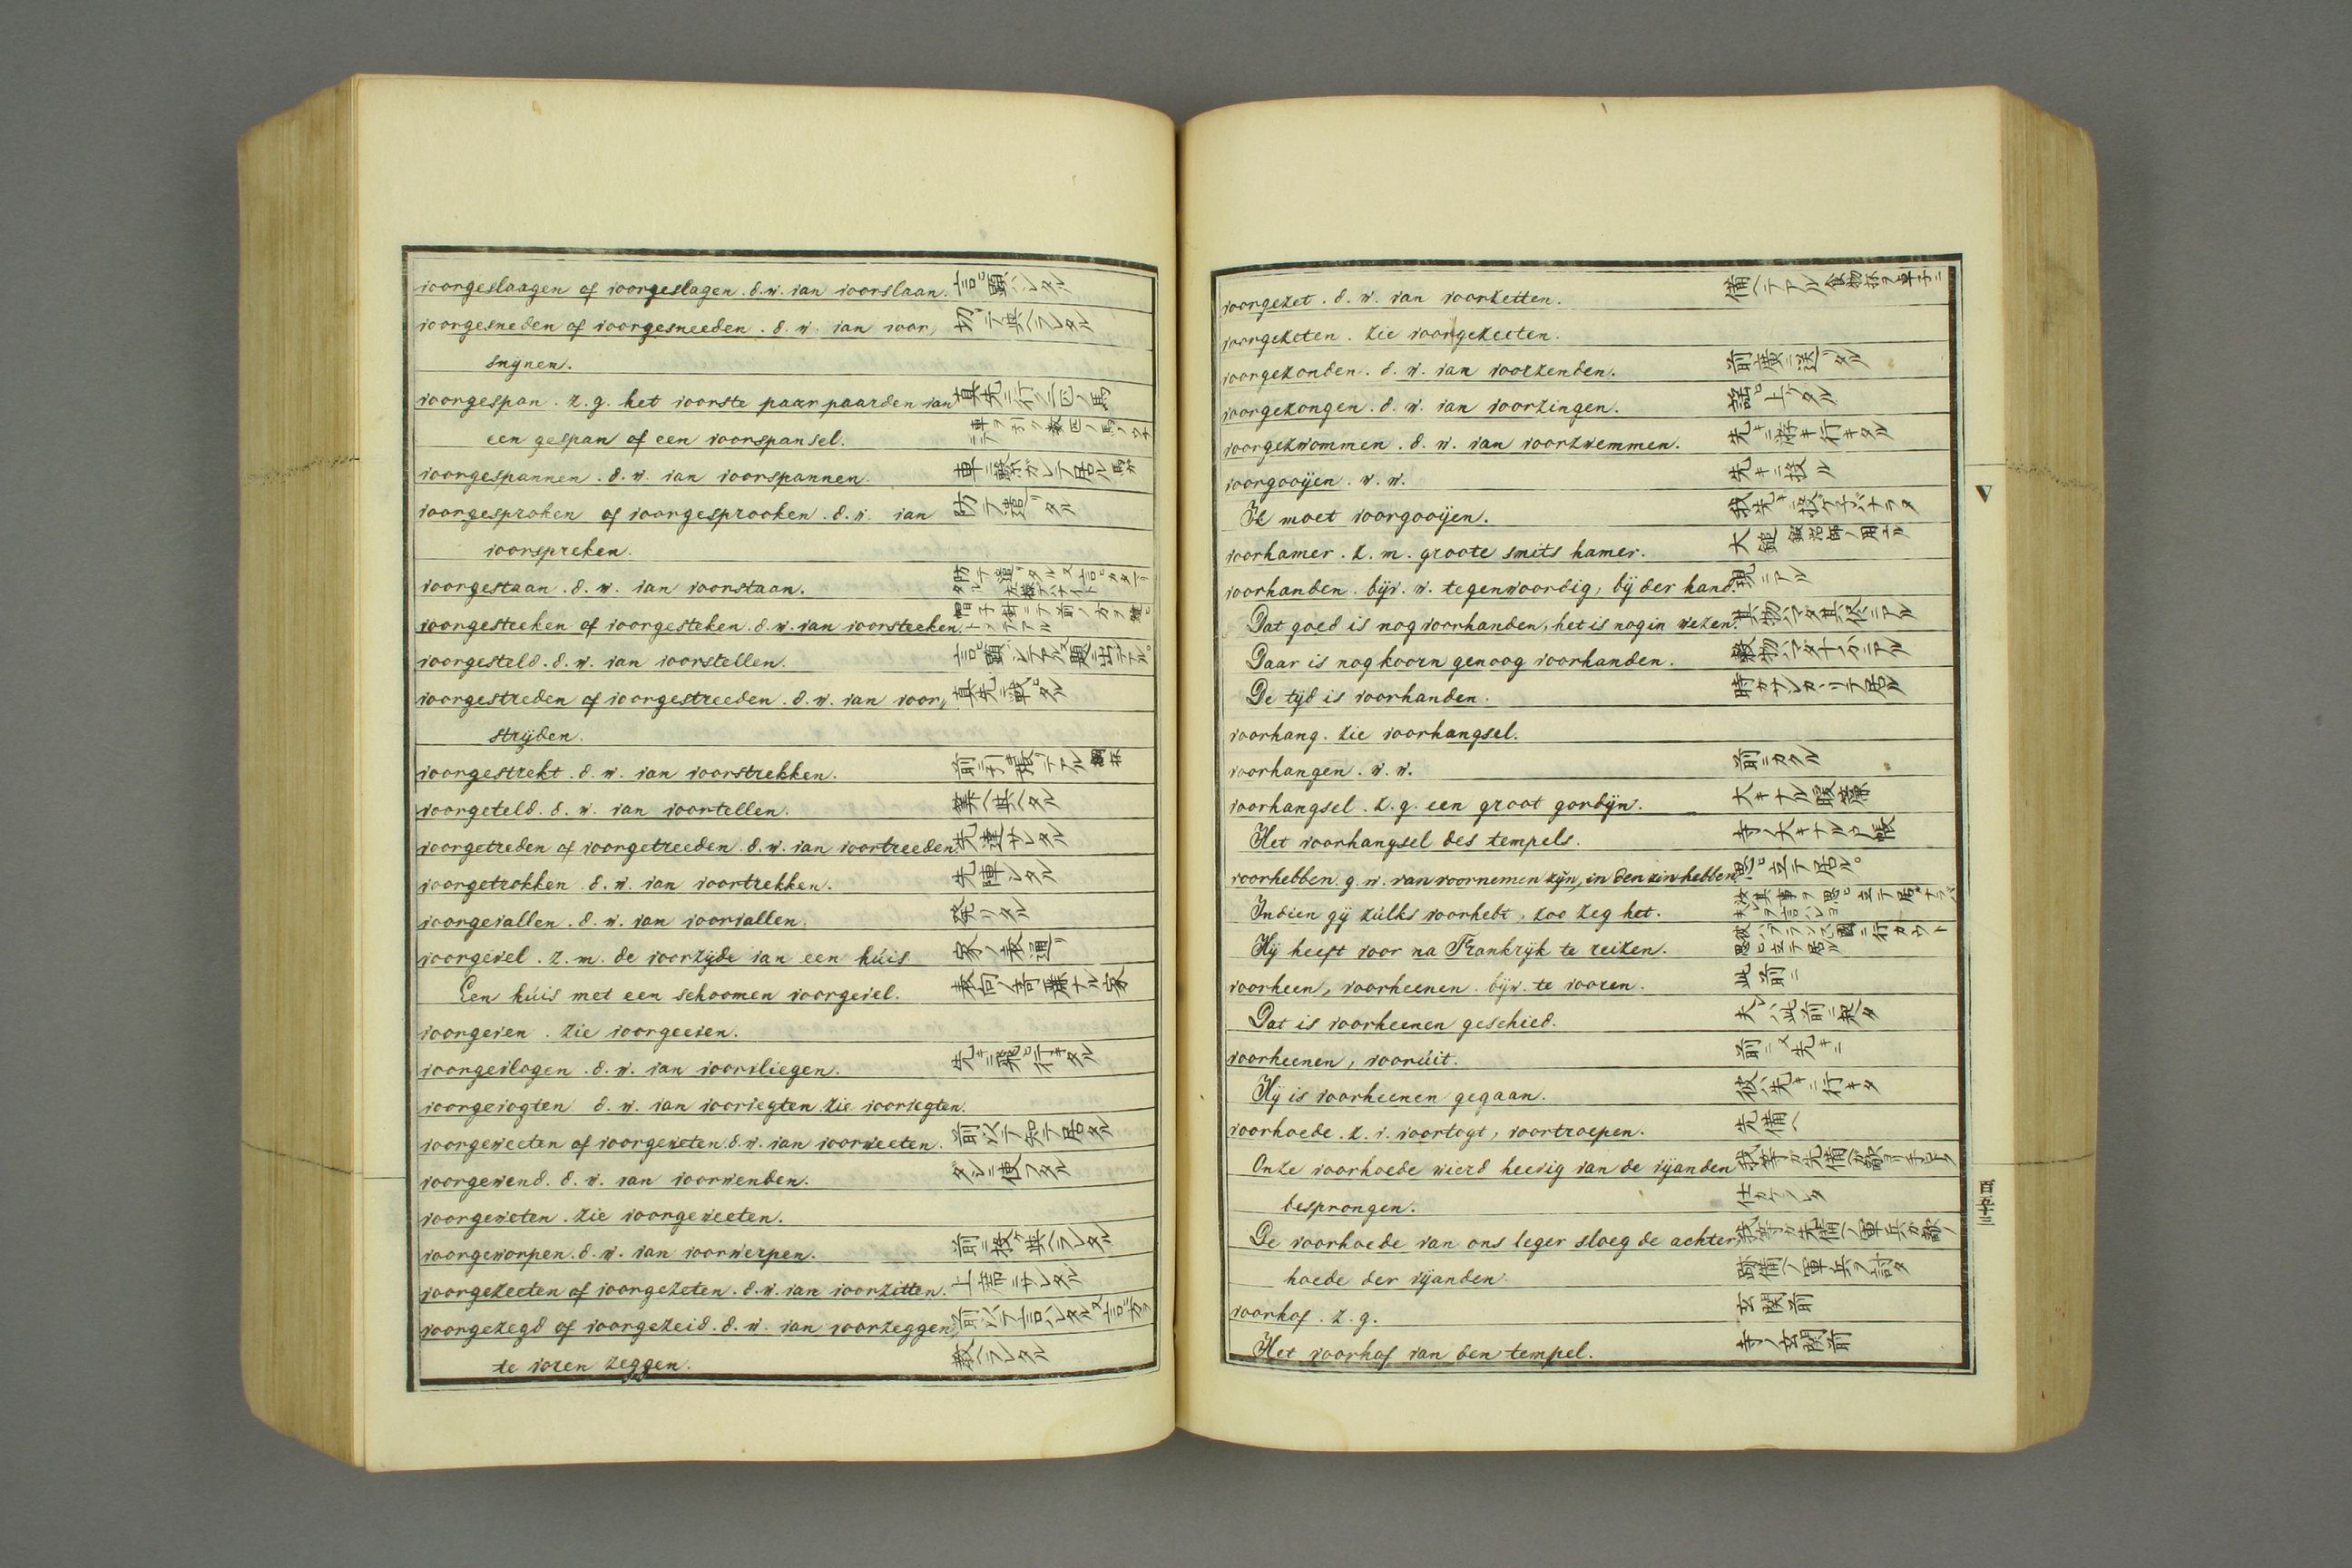 voorgeslaagen of voorgeslagen. d. w. van voorslaan. 言ヒ顕ハシタル
voorgesneden of voorgesneeden. d. w. van voor, 切テ與ヘラレタル
snijnen.
voorgespan. z. g. het voorste paar paarden van 真先ニ行ク二匹ノ馬
een gespan of een voorspansel. 車ヲ引ク数匹ノ馬ノ
voorgespannen. d. w. van voorspannen. 車ニ繋ガレテ居ル 馬ガ
voorgesproken of voorgesprooken. d. w. van 防テ遣リタル
voorspreken.
voorgestaan. d. w. van voorstaan. 防テ遣リタル
voorgesteeken of voorgesteken. d. w. van voorsteeken.
voorgesteld. d. w. van voorstellen. 言ヒ顕ハシテアル
voorgestreden of voorgestreeden. d. w. van voor, 真先ニ戦フタル
strijden.
voorgestrekt. d. w. van voorstrekken. 前ニ引張リテアル
voorgeteld. d. w. van voortellen. 算ヘ與ヘタル
voorgetreden of voorgetreeden. d. w. van voortreeden. 先達サレタル
voorgetrokken. d. w. van voortrekken. 先陣シタル
voorgevallen. d. w. van voorvallen. 発リタル
voorgevel. z. m. de voorzijde van een húis 家ノ表通リ
Een húis met een schoomen voorgevel. 表向ノ奇麗ナル家
voorgeven. zie voorgeeven.
voorgevlogen. d. w. van voorvliegen. 先キニ飛ヒ行キタル
voorgevogten d. w. van voorvegten zie voorvegten.
voorgeweeten of voorgeweten. d. w. van voorweeten. 前以テ知テ居タル
voorgewend. d. w. van voorwenden. ダシニ使フタル
voorgeweten. zie voorgeweeten.
voorgeworpen. d. w. van voorwerpen. 前ニ投ケ與ヘラレタル
voorgezeeten of voorgezeten. d. w. van voorzitten. 上席ニサレタル
voorgezegd of voorgezeid. d. w. van voorzeggen, 前以テ言ハレタル
te voren zeggen. 教ヘラレタル
voorgezet. d. w. van voorzetten. 備ヘテアル
voorgezeten. zie voorgezeeten.
voorgezonden. d. w. van voorzenden. 前廣ニ送リタル
voorgezongen. d. w. van voorzingen. 謡ヒ上ゲタル
voorgezwommen. d. w. van voorzwemmen. 先キニ游キ行キタル
voorgooijen. w. w. 先キニ投ル
Ik moet voorgooijen. 我先キニ投ケ子バナラヌ
voorhamer. z. m. groote smits hamer. 大鎚 鍛冶師ノ用ユル
voorhanden. bijv. w. tegenwoordig, bij der hand. 現ニアル
Dat goed is nog voorhanden, het is nog in wezen. 其物ハマダ其侭ニアル
Daar is nog koorn genoog voorhanden. 穀物ハマダ十分ニアル
De tijd is voorhanden. 時ガサシカヽリテ居ル
voorhang. zie voorhangsel.
voorhangen. w. w. 前ニカケル
voorhangsel. z. g. een groot gordijn. 大キナル暖簾
Het voorhangsel des tempels. 寺ノ大キナル戸帳
voorhebben. g. w. van voornemen zijn, in den zin hebben. 思ヒ立テ居ル。
Indien gij zúlks voorhebt, zoo zeg het. 汝其事ヲ思ヒ立テ居ルナラバ
Hij heeft voor na Frankrijk te reizen. 彼ハフランス國ニ行カウト思ヒ立テ居ル
voorheen, voorheenen. bijw. te vooren. 此前ニ
Dat is voorheenen geschied. 夫レハ此前ニ起タ
voorheenen, voorúit. 前ニ又先キニ
Hij is voorheenen gegaan. 彼ハ先キニ行キタ
voorhoede. z. v. voortogt, voortroepen. 先備ヘ
Onze voorhoede wierd heevig van de vijanden 我等ガ先備ヘガ敵ヨリ手ヒドク
besprongen. 仕カケラレタ
De voorhoede van ons leger sloeg de achter, 我等ガ先備ヘノ軍兵ガ敵ノ
hoede der vijanden. 跡備ヘノ軍兵ヲ討タ
voorhof. z. g. 玄関前
Het voorhof van den tempel. 寺ノ玄関前
V
百五十三